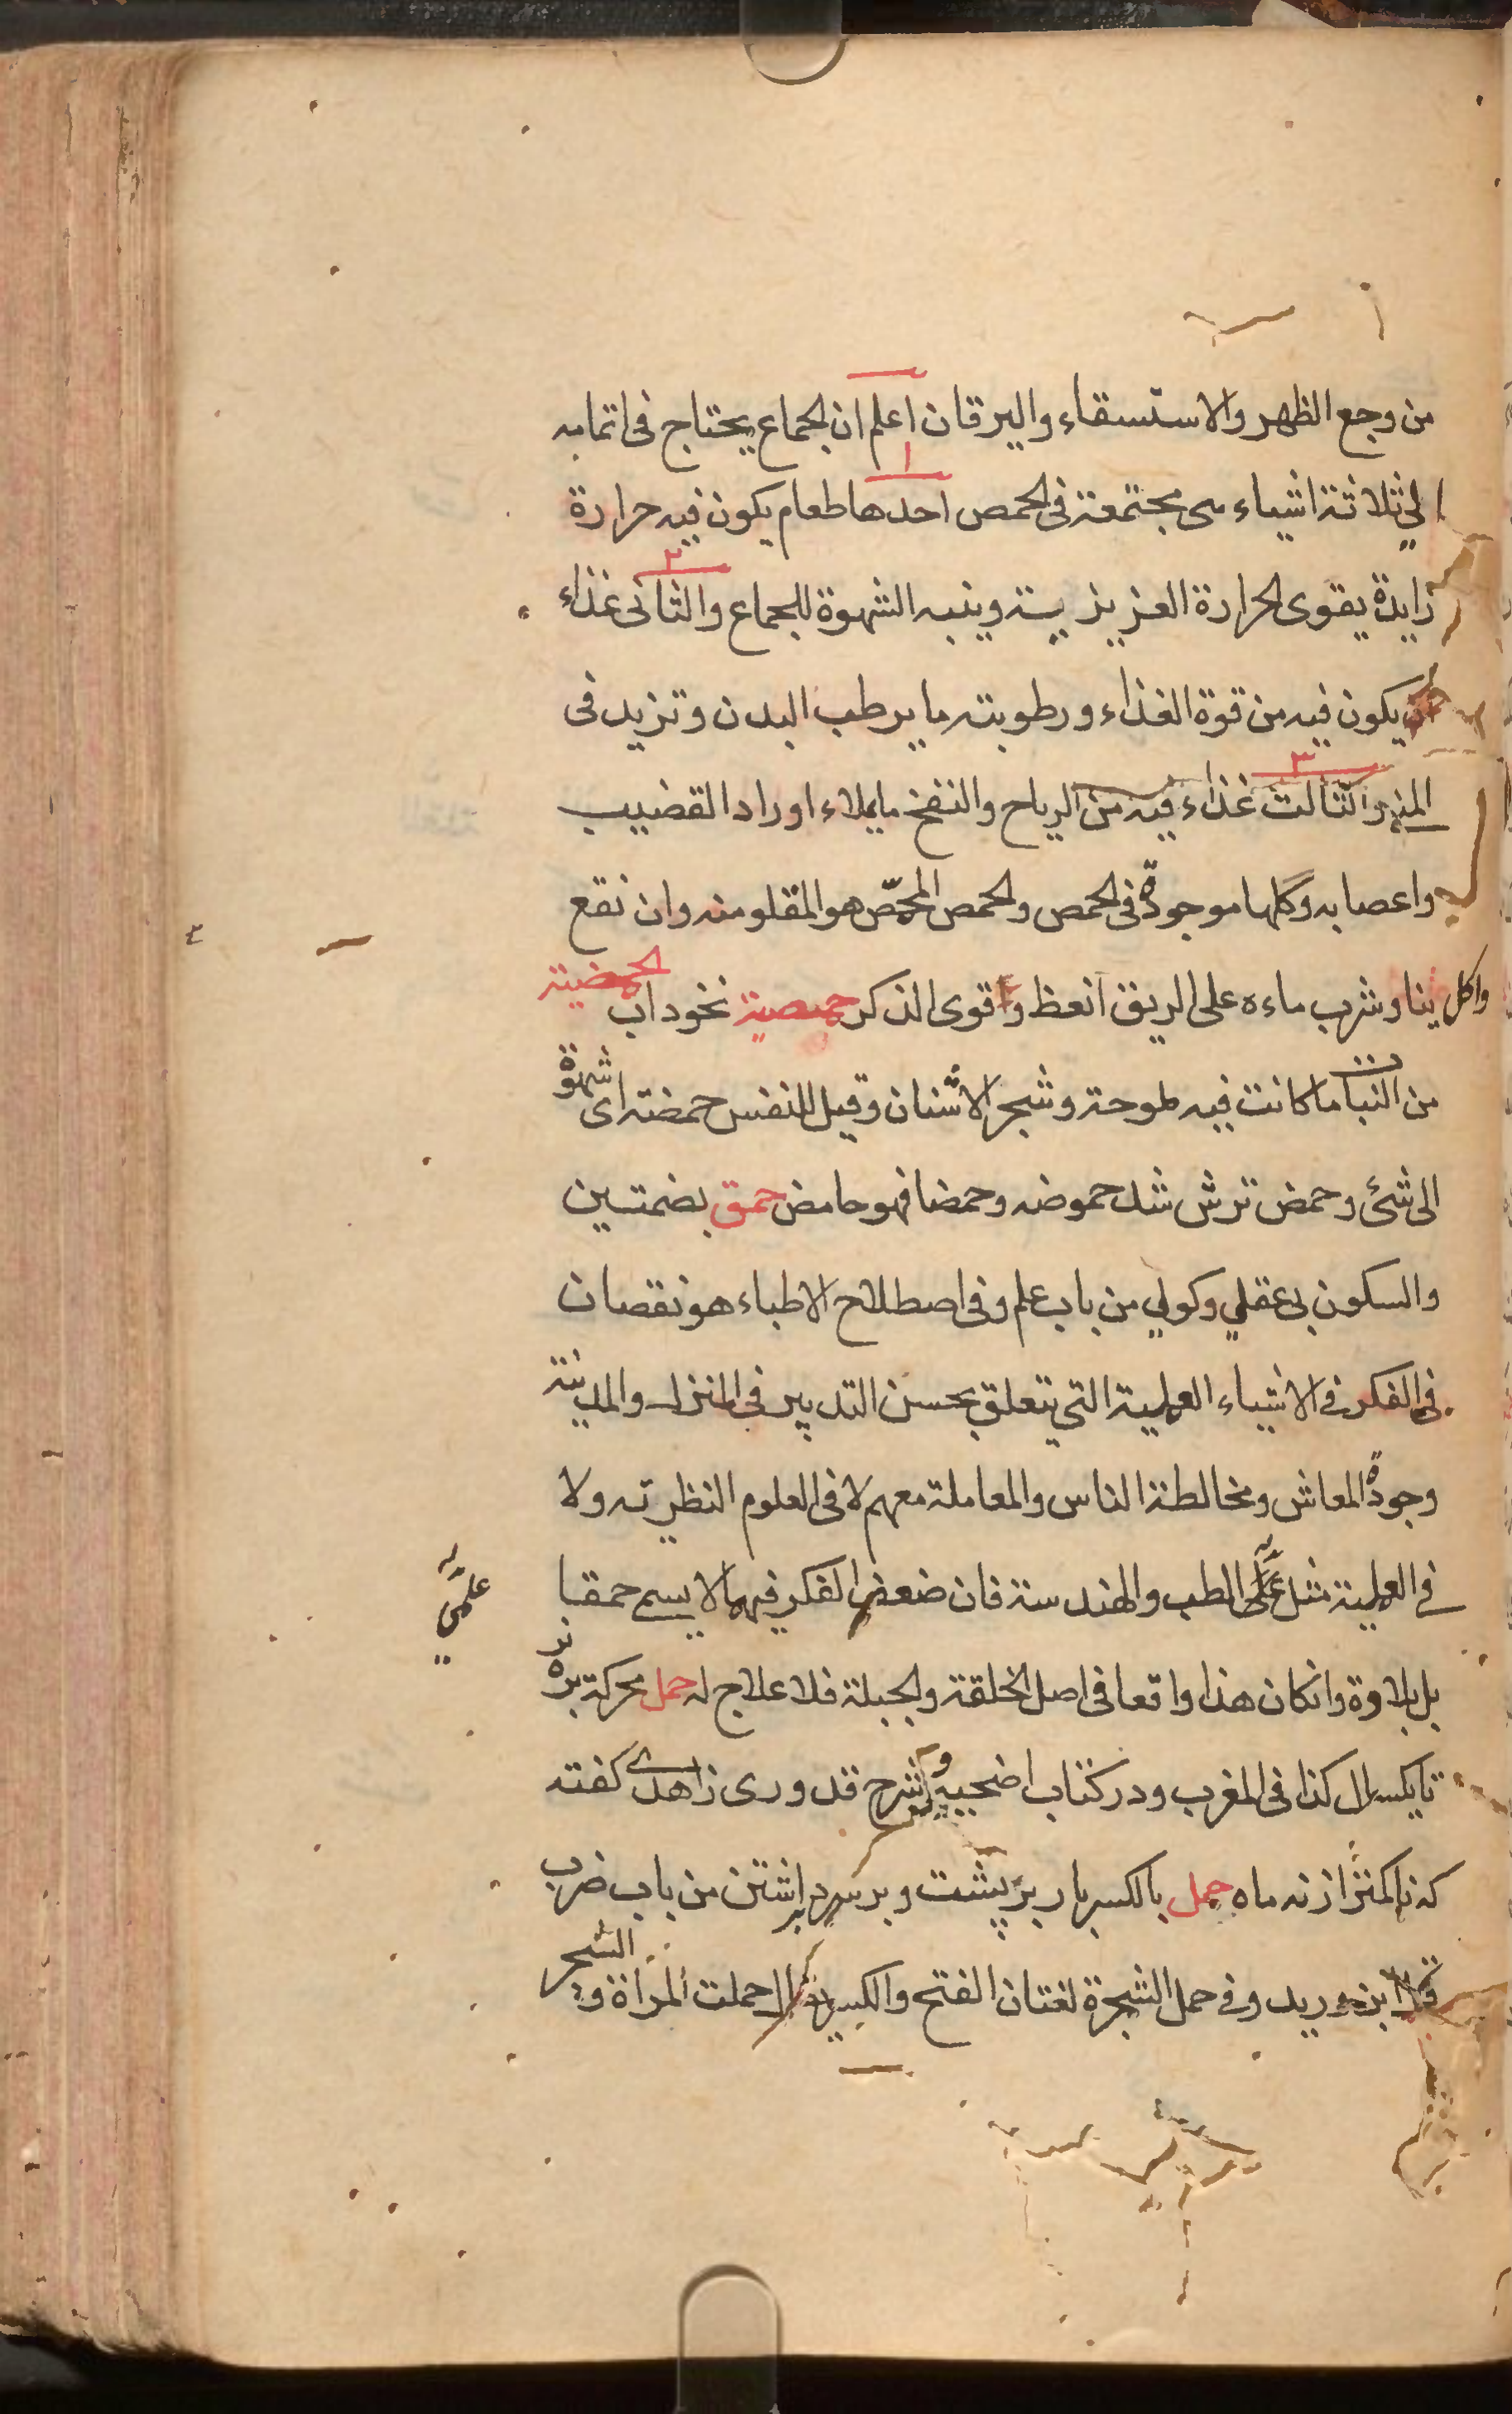 من وجع الظهر والاستسقاء واليرقان اعلم ان الجماع يحتاج فى اتمامه
الي ثلاثة اشياء هى مجتمعة فى الحمص احدها طعام يكون فيه حرارة
زايدة يقوى الحرارة العزيزية وينبه الشهوة للجماع والثانى غذاء
يكون فيه من قوة الغذاء ورطوبته ما يرطب البدن وتزيد فى
المنى والثالث غذاء فيه من الرياح والنفخ ما يملاء اوراد القضيب
واعصابه وكلها موجودة فى الحمص والحمص المحمّص هو المقلو منه وان نقع
واكل نيا وشرب ماءه على الريق انعظ واقوى الذكر حمصية نخوداب الحمضية
من النبات ما كانت فيه لموحة وشجر الاشنان وقيل للنفس حمضة اى شهوة
الى شئ وحمض ترش شد حموضه وحمضا فهو حامض حمق بضمتين
والسكون بى عقلي وكولي من باب علم وفى اصطلاح الاطباء هو نقصان
فى الفكر فى الاشياء العملية التى يتعلق بحسن التدبير فى المنزل والمدينة
وجودة المعاش ومخالطة الناس والمعاملة معهم لا فى العلوم النظرية ولا
فى العملية مثل الطب والهندسة فان ضعف الفكر فيهما لا يسمى حمقا
علمى
بل بلاوة وانكان هذا واقعا فى اصل الخلقة والجبلة فلا علاج له حمل محركة بره
تا يكسال كذا فى المغرب ودر كتاب اضحيه شرح قدورى زاهدى كفته
كه تا كمتر از نه ماه حمل بالكسر بار بر پشت وبر سر برداشتن من باب ضرب
قال ابن دريد وفى حمل الشجرة لغتان الفتح والكسر يقال حملت المراة و الشجر